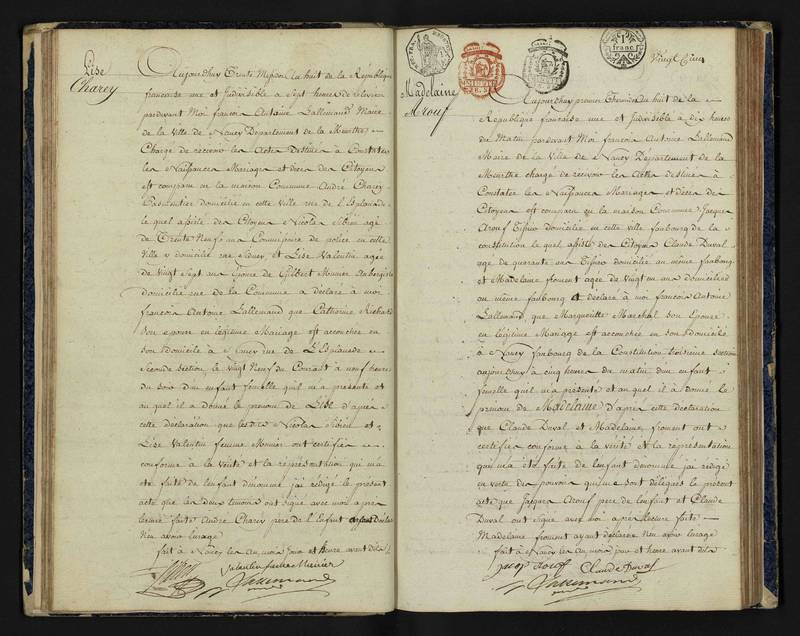 Lise
Charey
Aujourdhuy Trente Messidor lan huit de la République
francaise une et Indivisible a Sept heures de relevée
pardevant Moi francois Antoine Lallemand Maire
de la Ville de Nancy Departement de la Meurthe
Chargé de recevoir les Actes Destinés à Constater
les Naissances Mariages et décès des Citoyens
est comparu en la maison Commune André Charey
domicilié en cette Ville rue de l'Esplanade
le quel assisté des Citoyens Nicolas Sibien agé
de Trente Neuf ans Commissaire de police en cette
Ville y domicilié rue Sidney et Lise Valentin agée
de vingt Sept ans Epouse de Gilbert Munier Aubergiste
domicilié rue de la Commune a déclaré à moi
francois Antoine Lallemand que Catherine Richard
Son epouse en legitime Mariage est accouchée en
son domicile à Nancy rue de L'Esplanade
Seconde section, le vingt Neuf du Courant à neuf heures
du soir d'un enfant femelle quil m'a présenté et
au quel il a donné le prenom de Lise d'après
cette déclaration que lesdits Nicolas Sibien et
Lise Valentin femme Munier ont certifiée
conforme à la vérité et la représentation qui m'a
eté faite de l'enfant dénommé j'ai rédigé le présent
acte que les deux temoins ont signé avec moi après
lecture faite André Charey père de l'Enfant
n'en avoir l'usage
fait à Nancy les an, mois jour et heure avant dits
Valentin femme Munier
Lallemand
1
franc
Vingt Cinq
Madelaine
Arouf
Aujourdhuy premier Thermidor lan huit de la
République francaise une et Indivisible à dix heures
du Matin pardevant Moi francois Antoine Lallemand
Maire de la Ville de Nancy Département de la
Meurthe chargé de recevoir les Actes destinés à
Constater les Naissances Mariages et décès des
Citoyens est comparu en la maison Commune Jacques
Arouf domicilié en cette ville faubourg de la
constitution le quel assisté des Citoyens Claude Duval
agé de quarante ans domicilié au même faubourg
et Madelaine froment agée de Vingt un ans domiciliée
au même faubourg a déclaré à moi francois Antoine
Lallemand que Marguerite Marchal son Epouse
en légitime Mariage est accouchée en son domicile
à Nancy faubourg de la Constitution troisieme section
aujourdhuy à cinq heures du matin d'un enfant
femelle quil m'a présenté et au quel il à donné le
prenom de Madelaine d'après cette déclaration
que Claude Duval et Madelaine froment ont
certifiée conforme à la vérité et la représentation
qui m'a eté faite de l'enfant dénommé j'ai rédigé
en vertu des pouvoirs qui me sont délégués le présent
acte que Jacques Arouf père de l'enfant et Claude
Duval ont signé avec moi après lecture faite
Madelaine froment ayant déclaré n'en avoir l'usage
fait à Nancy les an, mois jour et heure avant dits
Claude Duval
Lallemand